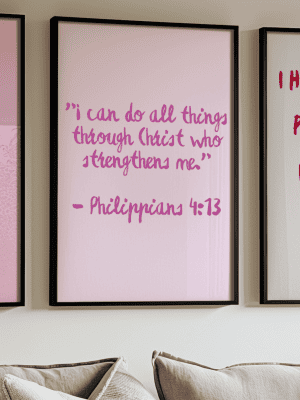 "i can do all things
through Christ who
strengthens me."
- Philippians 4:13
I H